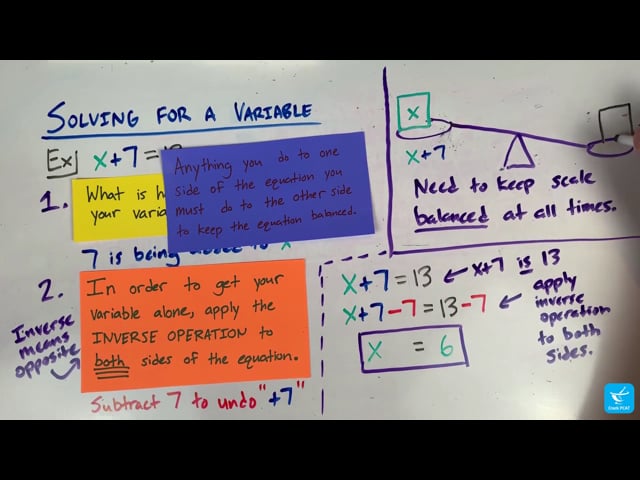 SOLVING FOR A VARIABLE
Ex x+7=13
1.
What is h
your varia
Anything you do to one
side of the equation you
must do to the other side
to keep the equation balanced.
7 is being added to x
2.
In order to get your
variable alone, apply the
INVERSE OPERATION to
both sides of the equation.
Inverse
means
opposite
Subtract 7 to undo "+7"
x
x+7
Need to keep scale
balanced at all times.
x+7=13 ← x+7 is 13
x+7-7=13-7 ← apply
inverse
operation
to both
sides.
x = 6
Crash PCAT